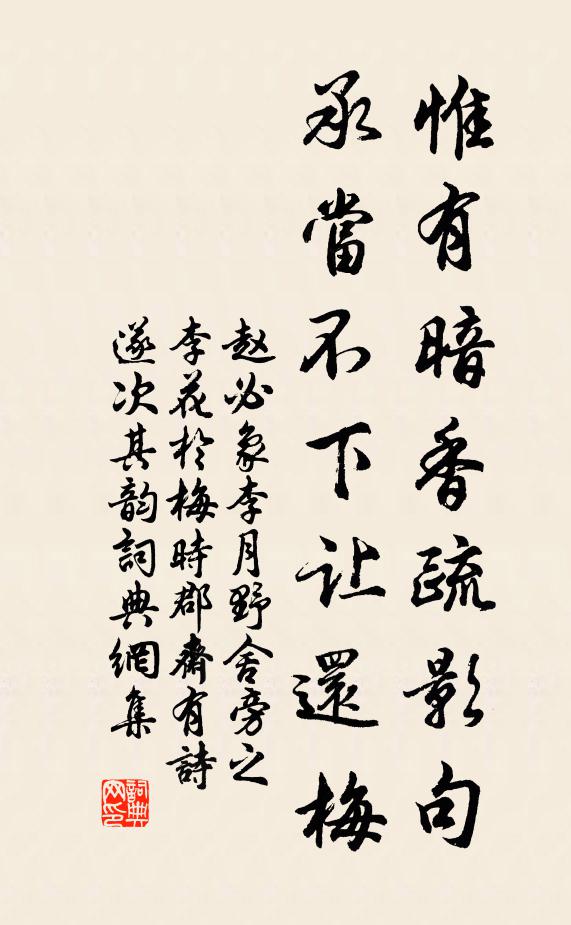 惟有暗香疏影句
承當不下让還梅
赵必象李月野舍旁之
李花於梅時郡齋有詩
遂次其韵詞典網集
詞典网印